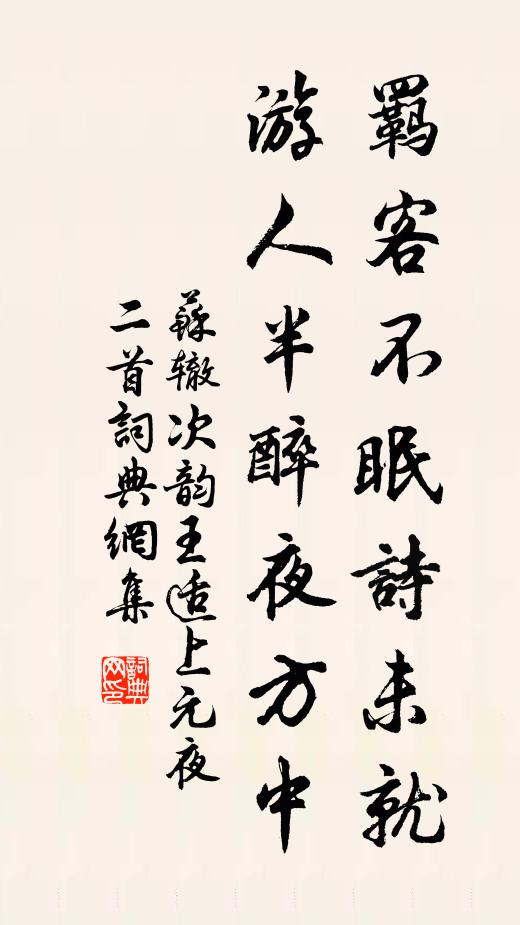 羈客不眠詩未就
游人半醉夜方中
蘇辙次韵王适上元夜
二首詞典網集
詞典网印